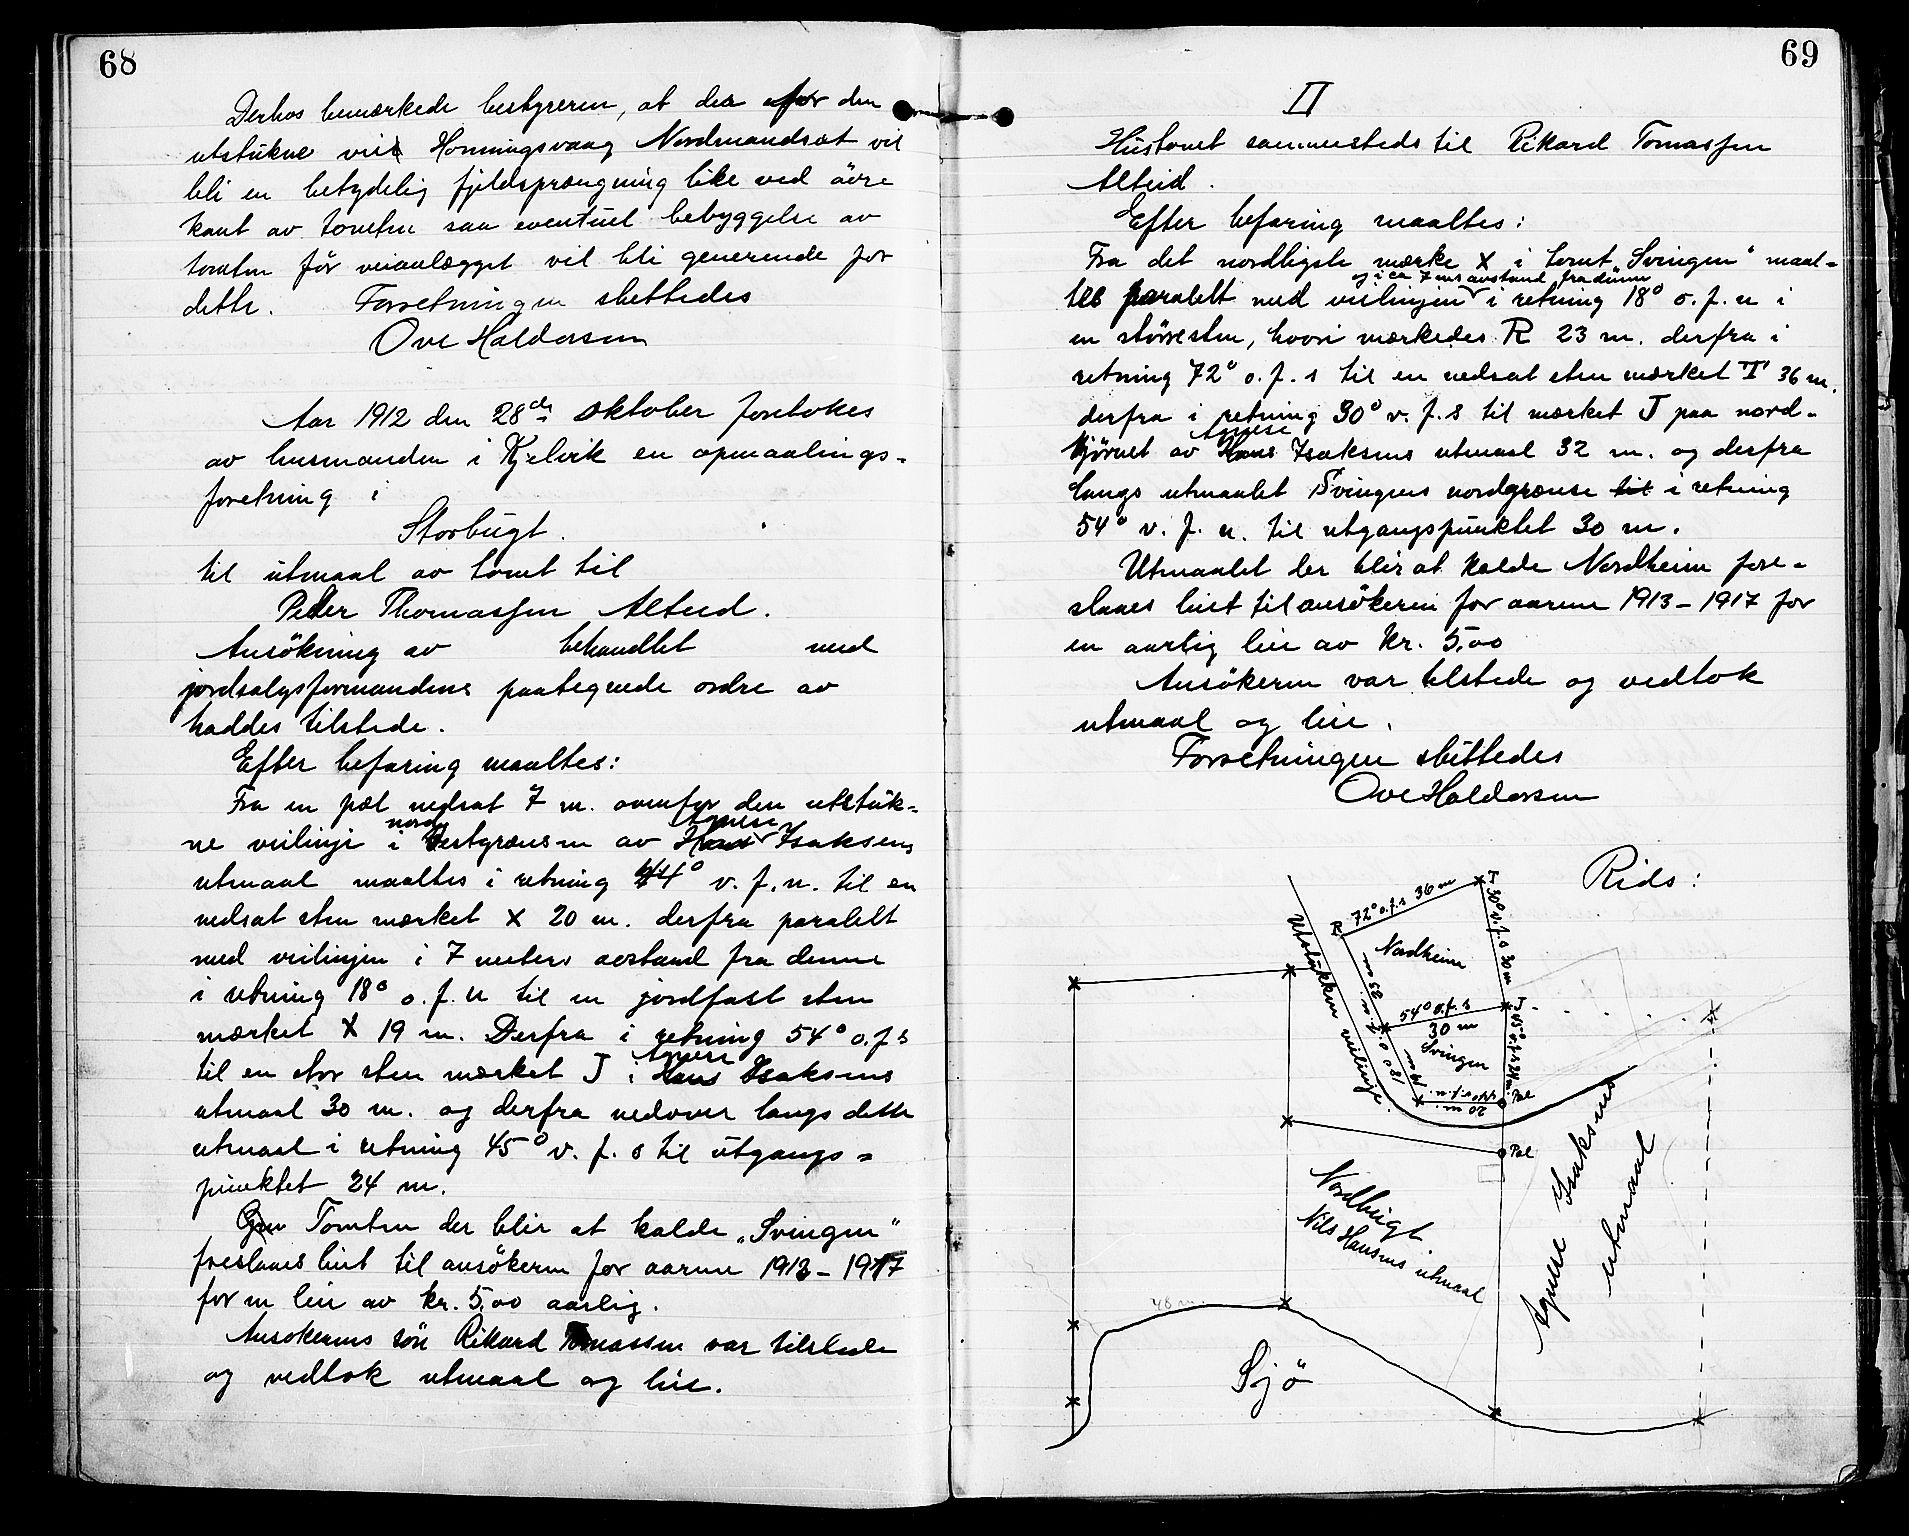 68
Derhos bemærkede bestyreren, at der for den
utstukne vei Honningsvaag Nordmandsæt vil
bli en betydelig fjeldsprængning like ved övre
kant av tomten saa eventuel bebyggelse av
tomten för veianlægget vil bli generende for
dette. Forretningen sluttedes
Ove Haldorsen
Aar 1912 den 28de oktober foretokes
av lensmanden i Kjelvik en opmaalings-
forretning i
Storbugt.
til utmaal av tomt til
Peder Thomassen Alteid.
Ansökning av behandlet med
jordsalgsformandens paategnede ordre av
haddes tilstede.
Efter befaring maaltes:
Fra en pæl nedsat 7 m. ovenfor den utstuk-
ne veilinje i nordvestgrænsen av Hans Agnese Isaksens
utmaal maaltes i retning 44° v.f.n. til en
nedsat sten mærket x 20 m. derfra paralelt
med veilinjen i 7 meters avstand fra denne
i retning 18° o.f.n til en jordfast sten
mærket X 19 m. Derfra i retning 54° o.f s
til en stor sten mærket J i Hans Agnese Isaksens
utmaal 30 m. og derfra nedover langs dette
utmaal i retning 45° v. f. s til utgangs-
punktet 24 m.
Tomten der blir at kalde „Svingen"
foreslaaes leiet til ansökeren for aarene 1913-1917
for en leie av kr. 5,00 aarlig.
Ansökerens sön Rikard Tomassen var tilstede
og vedtok utmaal og leie.
69
II
Hustomt sammesteds til Rikard Tomassen
Alteid.
Efter befaring maaltes:
Fra det nordligste mærke X i tomt „Svingen" maal-
og i ca 7 ms avstand fra denne
tes paralelt med veilinjen i retning 18° o. f. n i
en större sten, hvori mærkedes R 23 m. derfra i
retning 72° o. f. s til en nedsat sten mærket T 36 m.
derfra i retning 30° v. f. s til mærket J paa nord-
hjörnet av Hans Agnese Isaksens utmaal 32 m. og derfra
langs utmaalet Svingens nordgrænse til i retning
54° v. f. n. til utgangspunktet 30 m.
Utmaalet der blir at kalde Nordheim fore-
slaaes leiet til ansökeren for aarene 1913-1917 for
en aarlig leie av kr. 5,00
Ansökeren var tilstede og vedtok
utmaal og leie.
Forretningen sluttedes
Ove Haldorsen
Rids:
R 72° o.f.s 36 m T
30° v.f.s 30 m
Utstukken veilinje.
Nordheim
18° o.f.n. 23 m
54° o.f.s
30 m
J
Svingen
19 m
45° v.f.s 24 m.
44° v.f.n.
20 m.
Pæl
Pæl
Nordbugt.
Nils Hansens utmaal
Agnese Isaksens
utmaal
48 m
Sjö